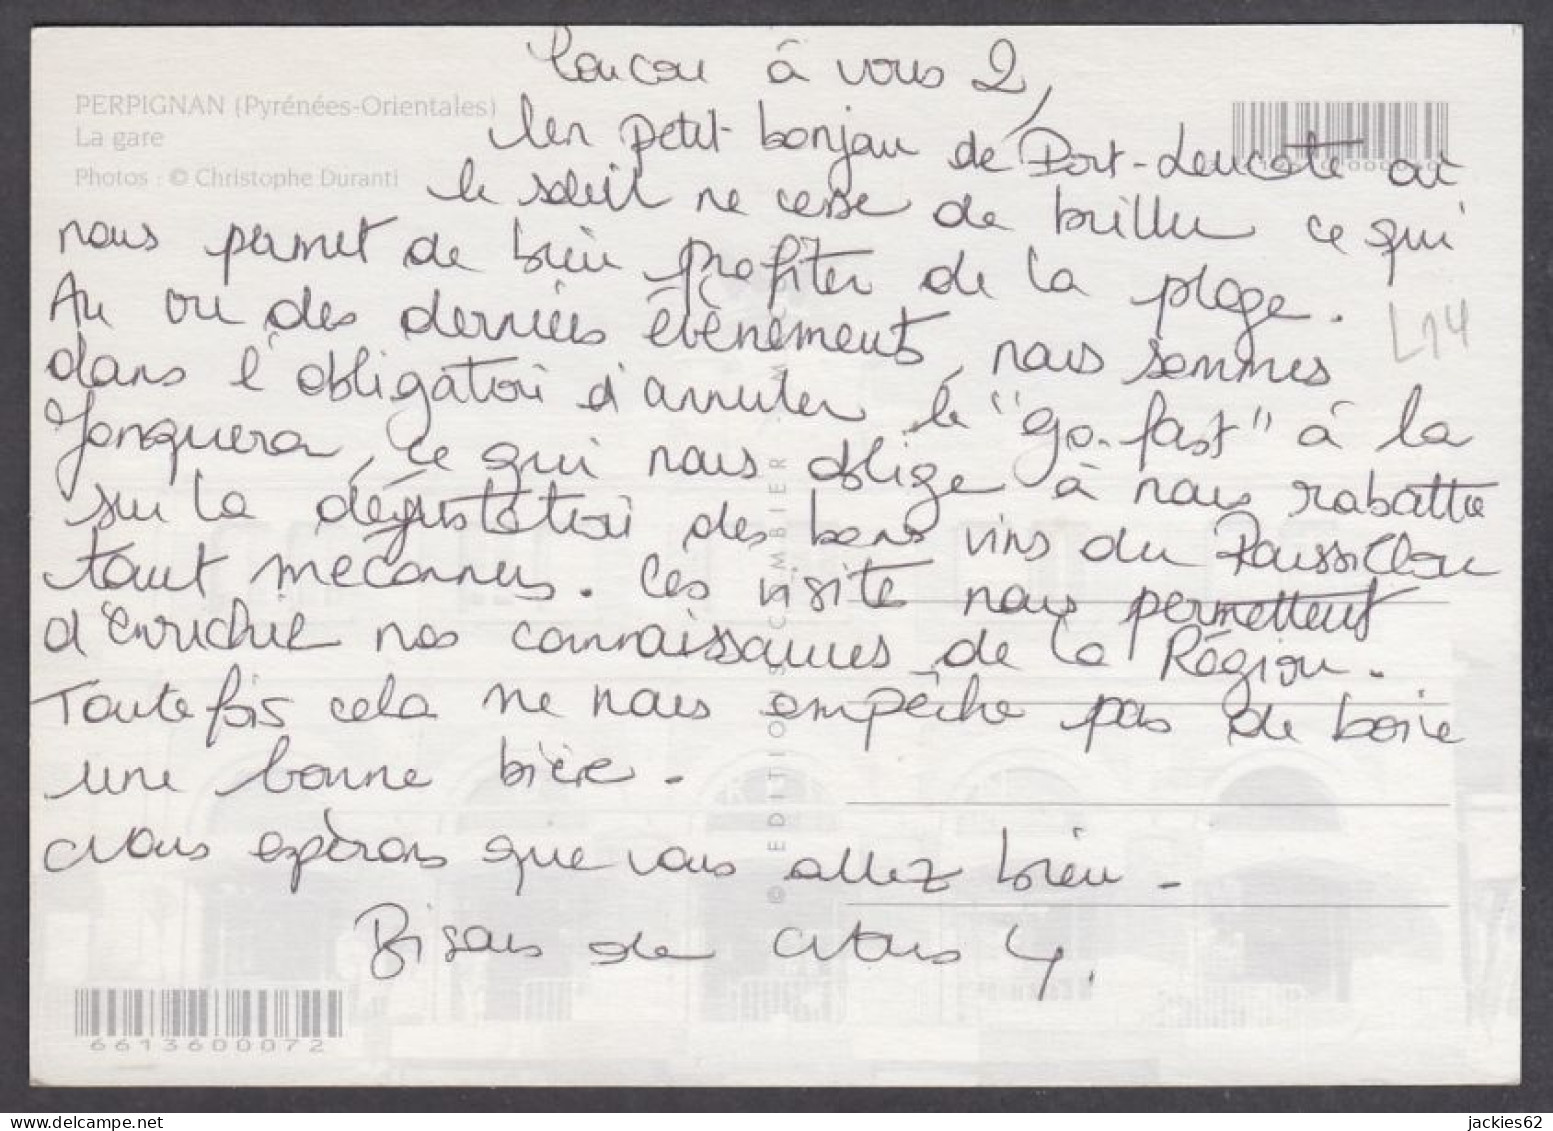 PERPIGNAN (Pyrénées-Orientales)
La gare
Photos : © Christophe Duranti
Coucou à vous 2,
Un petit bonjour de Port-Leucate où
le soleil ne cesse de briller ce qui
nous permet de bien profiter de la plage.
Au vu des derniers évènements, nous sommes
dans l'obligation d'annuler le "go-fast" à la
Jonquera, ce qui nous oblige à nous rabattre
sur la dégustation des bons vins du Roussillon
tant méconnus. Ces visite nous permettent
d'enrichir nos connaissances de la Région.
Toutefois cela ne nous empêche pas de boire
une bonne bière.
Nous espérons que vous allez bien.
Bisous de Nous 4.
L14
© EDITIONS COMBIER MACON
6613600072
jackies62